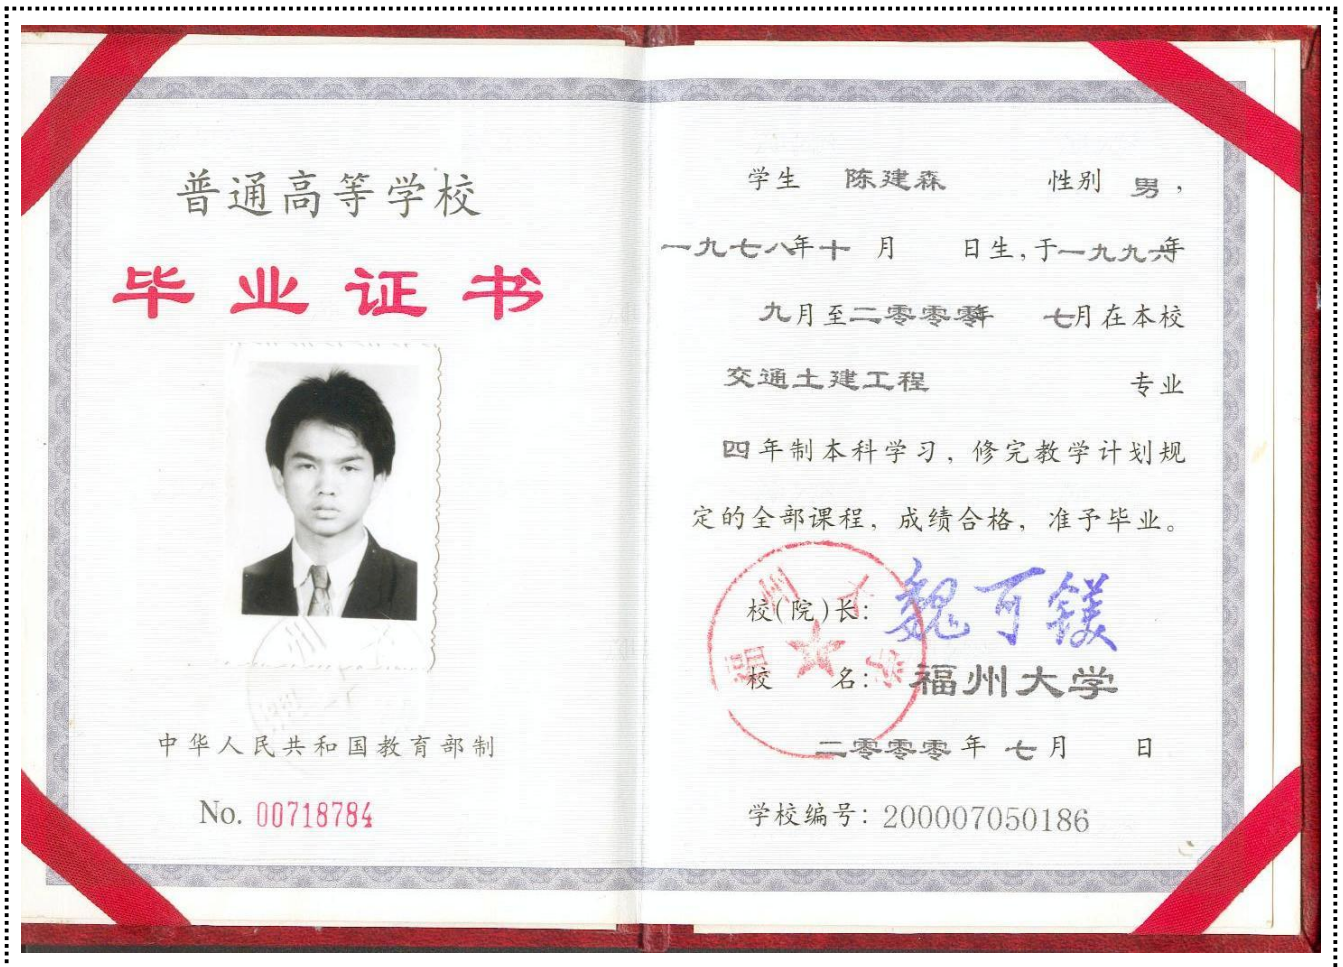 普通高等学校
毕业证书
中华人民共和国教育部制
No. 00718784
学生 陈建森 性别 男，
一九七八年十 月 日生，于一九九六年
九月至二零零零年 七月在本校
交通土建工程 专业
四年制本科学习，修完教学计划规
定的全部课程，成绩合格，准予毕业。
校(院)长：魏可镁
校 名：福州大学
福州大学
二零零零年 七月 日
学校编号：200007050186